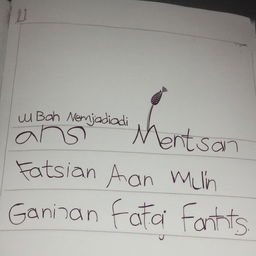 UBah Nemjadiadi
ans Mentsan
Fatsian Aan Mulin
Ganinan Fatai Fanhts.